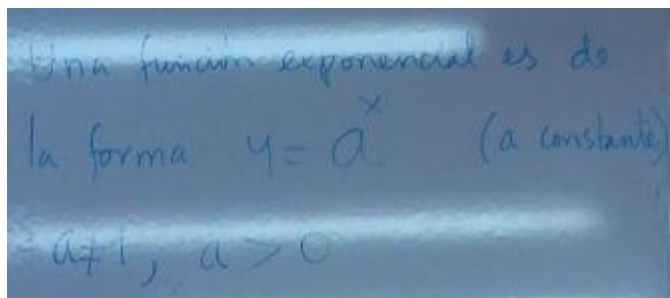 Una función exponencial es de
la forma y = a^x (a constante)
a≠1, a > 0